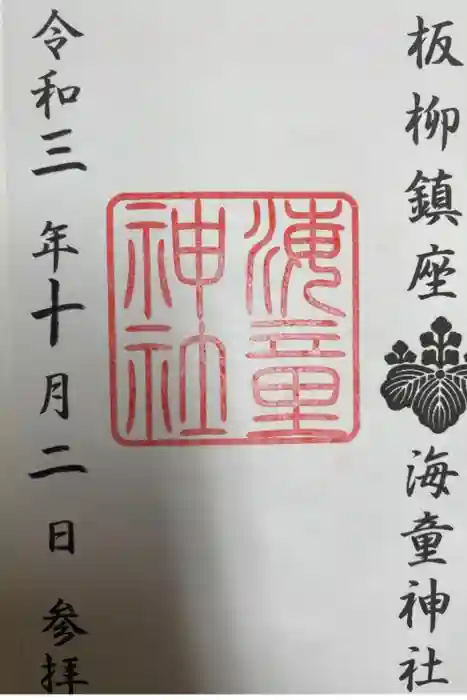 板柳鎮座 海童神社
海童
神社
令和三年十月二日 参拝